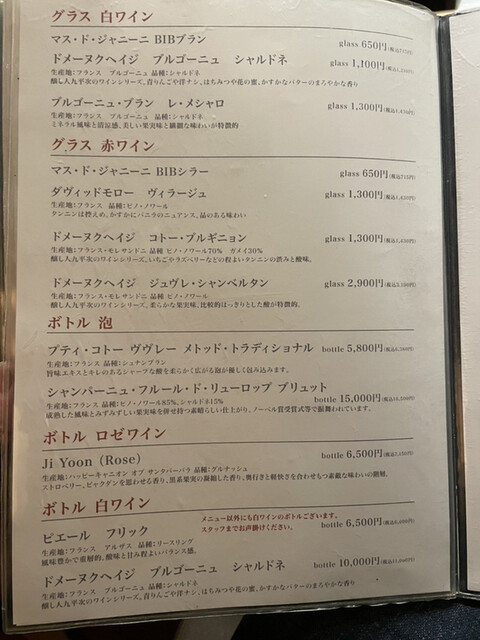 グラス 白ワイン
マス・ド・ジャニーニ BIBブラン glass 650円(税込715円)
ドメーヌクヘイジ ブルゴーニュ シャルドネ glass 1,100円(税込1,210円)
生産地:フランス ブルゴーニュ 品種:シャルドネ
醸し人九平次のワインシリーズ。青りんごや洋ナシ、はちみつや花の蜜、かすかなバターのまろやかな香り
ブルゴーニュ・ブラン レ・メシャロ glass 1,300円(税込1,430円)
生産地:フランス ブルゴーニュ 品種:シャルドネ
ミネラル風味と清涼感、美しい果実味と繊細な味わいが特徴的
グラス 赤ワイン
マス・ド・ジャニーニ BIBシラー glass 650円(税込715円)
ダヴィッドモロー ヴィラージュ glass 1,300円(税込1,430円)
生産地:フランス 品種:ピノ・ノワール
タンニンは控えめ、かすかにバニラのニュアンス、品のある味わい
ドメーヌクヘイジ コトー・ブルギニョン glass 1,300円(税込1,430円)
生産地:フランス・モレサンドニ 品種 ピノ・ノワール70% ガメイ30%
醸し人九平次のワインシリーズ。いちごやラズベリーなどの程よいタンニンの渋みと酸味。
ドメーヌクヘイジ ジュヴレ・シャンベルタン glass 2,900円(税込3,190円)
生産地:フランス・モレサンドニ 品種 ピノ・ノワール
醸し人九平次のワインシリーズ。柔らかな果実味、比較的はっきりとした酸が特徴的。
ボトル 泡
プティ・コトー ヴヴレー メトッド・トラディショナル bottle 5,800円(税込6,380円)
生産地:フランス 品種:シュナンブラン
旨味エキスとキレのあるシャープな酸を柔らかく広がる泡が優しく包み込みます。
シャンパーニュ・フルール・ド・リューロップ ブリュット bottle 15,000円(税込16,500円)
生産地:フランス 品種:ピノ・ノワール85%、シャルドネ15%
成熟した風味とみずみずしい果実味を併せ持つ素晴らしい仕上がり。ノーベル賞受賞式等で振舞われています。
ボトル ロゼワイン
Ji Yoon (Rose) bottle 6,500円(税込7,150円)
生産地:ハッピーキャニオン オブ サンタバーバラ 品種:グルナッシュ
ストロベリー、ビャクダンを思わせる香り、黒系果実の凝縮した香り、奥行きと軽快さを合わせもつ素敵な味わいの階層。
ボトル 白ワイン
メニュー以外にも白ワインのボトルございます。
スタッフまでお声掛けください。
ピエール フリック bottle 6,500円
生産地:フランス アルザス 品種:リースリング
風味豊かで重層的。酸味と甘み程よいバランス感。
ドメーヌクヘイジ ブルゴーニュ シャルドネ bottle 10,000円(税込11,000円)
生産地:フランス ブルゴーニュ 品種:シャルドネ
醸し人九平次のワインシリーズ。青りんごや洋ナシ、はちみつや花の蜜、かすかなバターのまろやかな香り